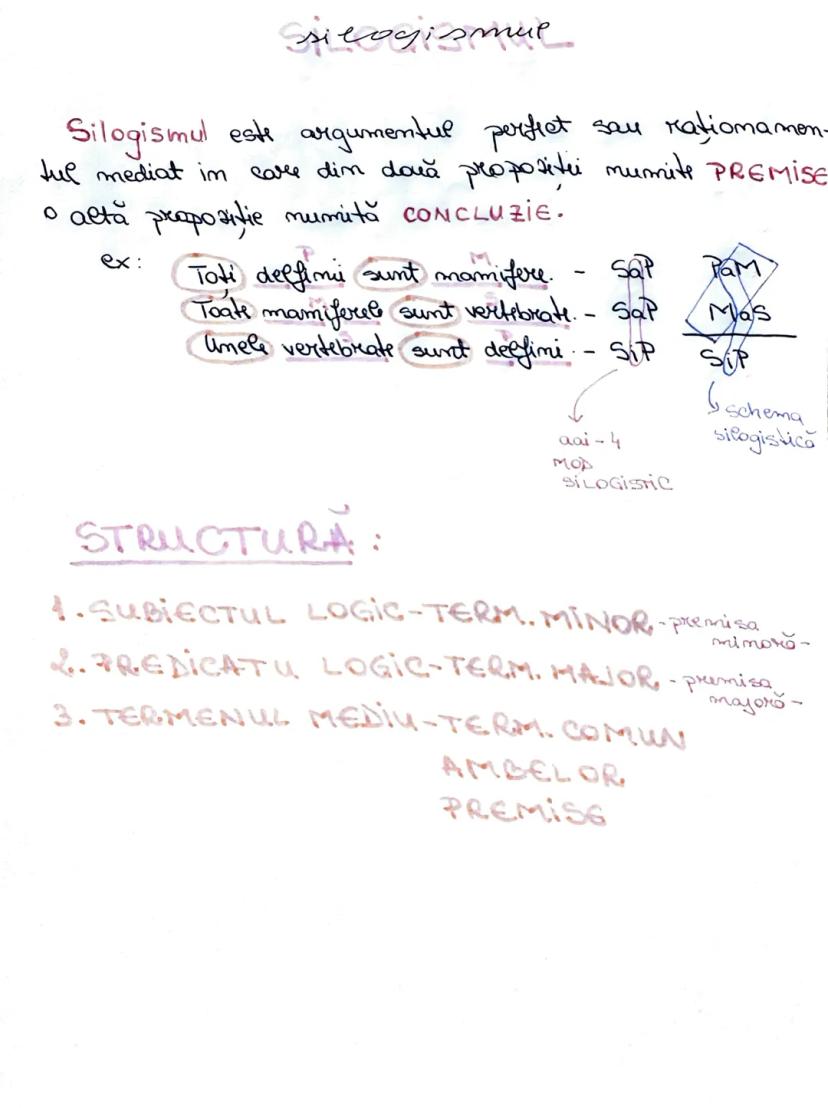 SILOGISMUL
silogismul
Silogismul este argumentul perfect sau raționamen-
tul mediat in care din două propoziții numite PREMISE
o altă propoziție numită CONCLUZIE.
ex:
P M
Toți delfinii sunt mamifere. - SaP PaM
Toate mamiferele sunt vertebrate. - SaP MaS
Unele vertebrate sunt delfini. - SiP SiP
schema
silogistică
aai-4
MOD
SILOGISTIC
STRUCTURĂ:
1. SUBIECTUL LOGIC-TERM. MINOR - premisa
minoră -
2. PREDICATU LOGIC-TERM. MAJOR - premisa
majoră -
3. TERMENUL MEDIU-TERM. COMUN
AMBELOR
PREMISE